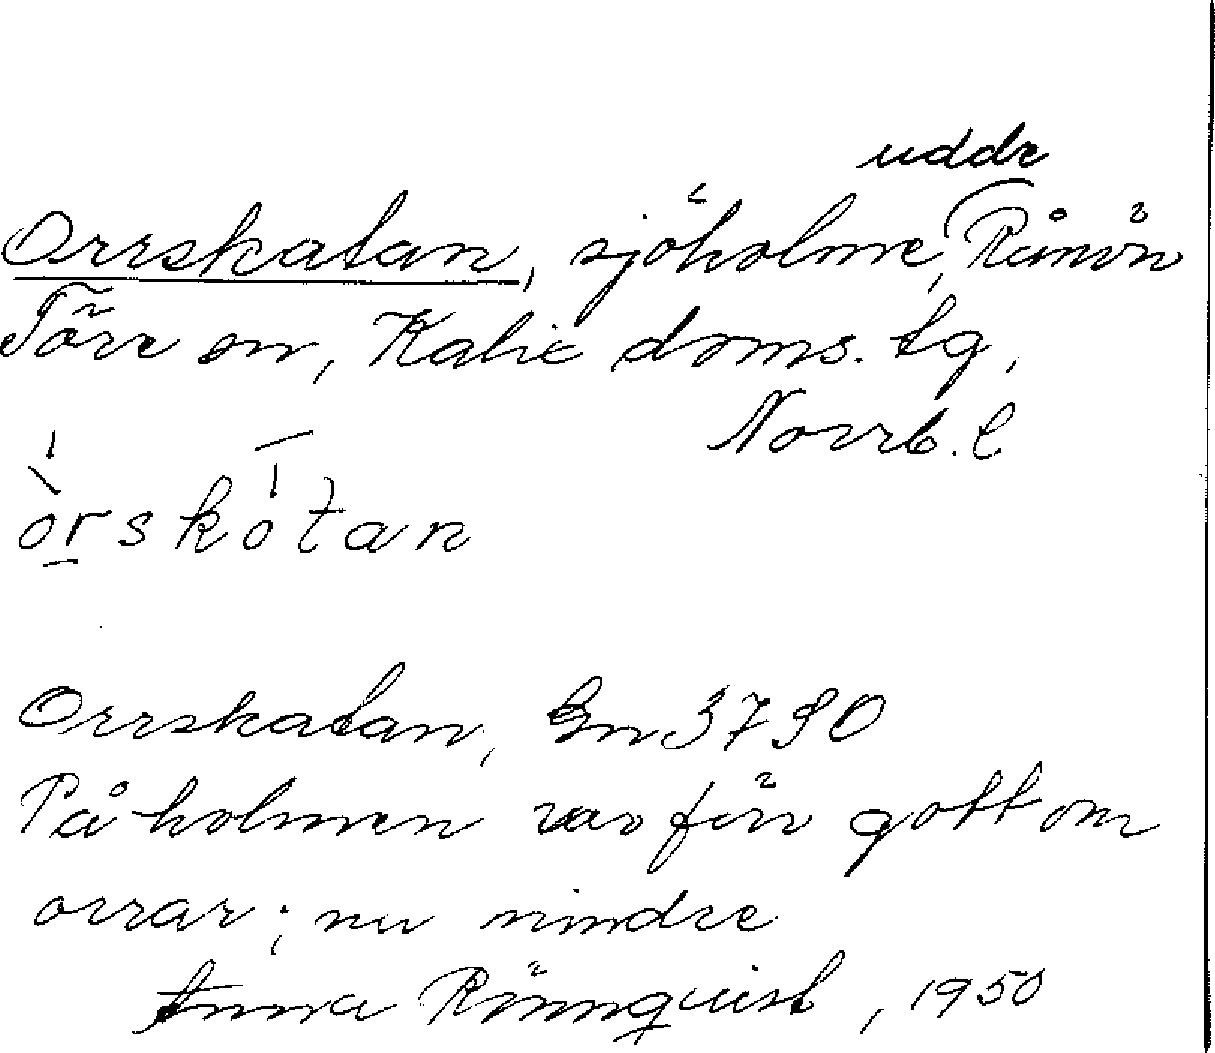 udde
Orrskatan, sjöholme, Rånön
Töre sn, Kalix doms. tg,
Norrb. l
òrskòtan
Orrskatan, Gn 3790
På holmen var förr gott om
orrar; nu mindre
Anna Rönnquist, 1950